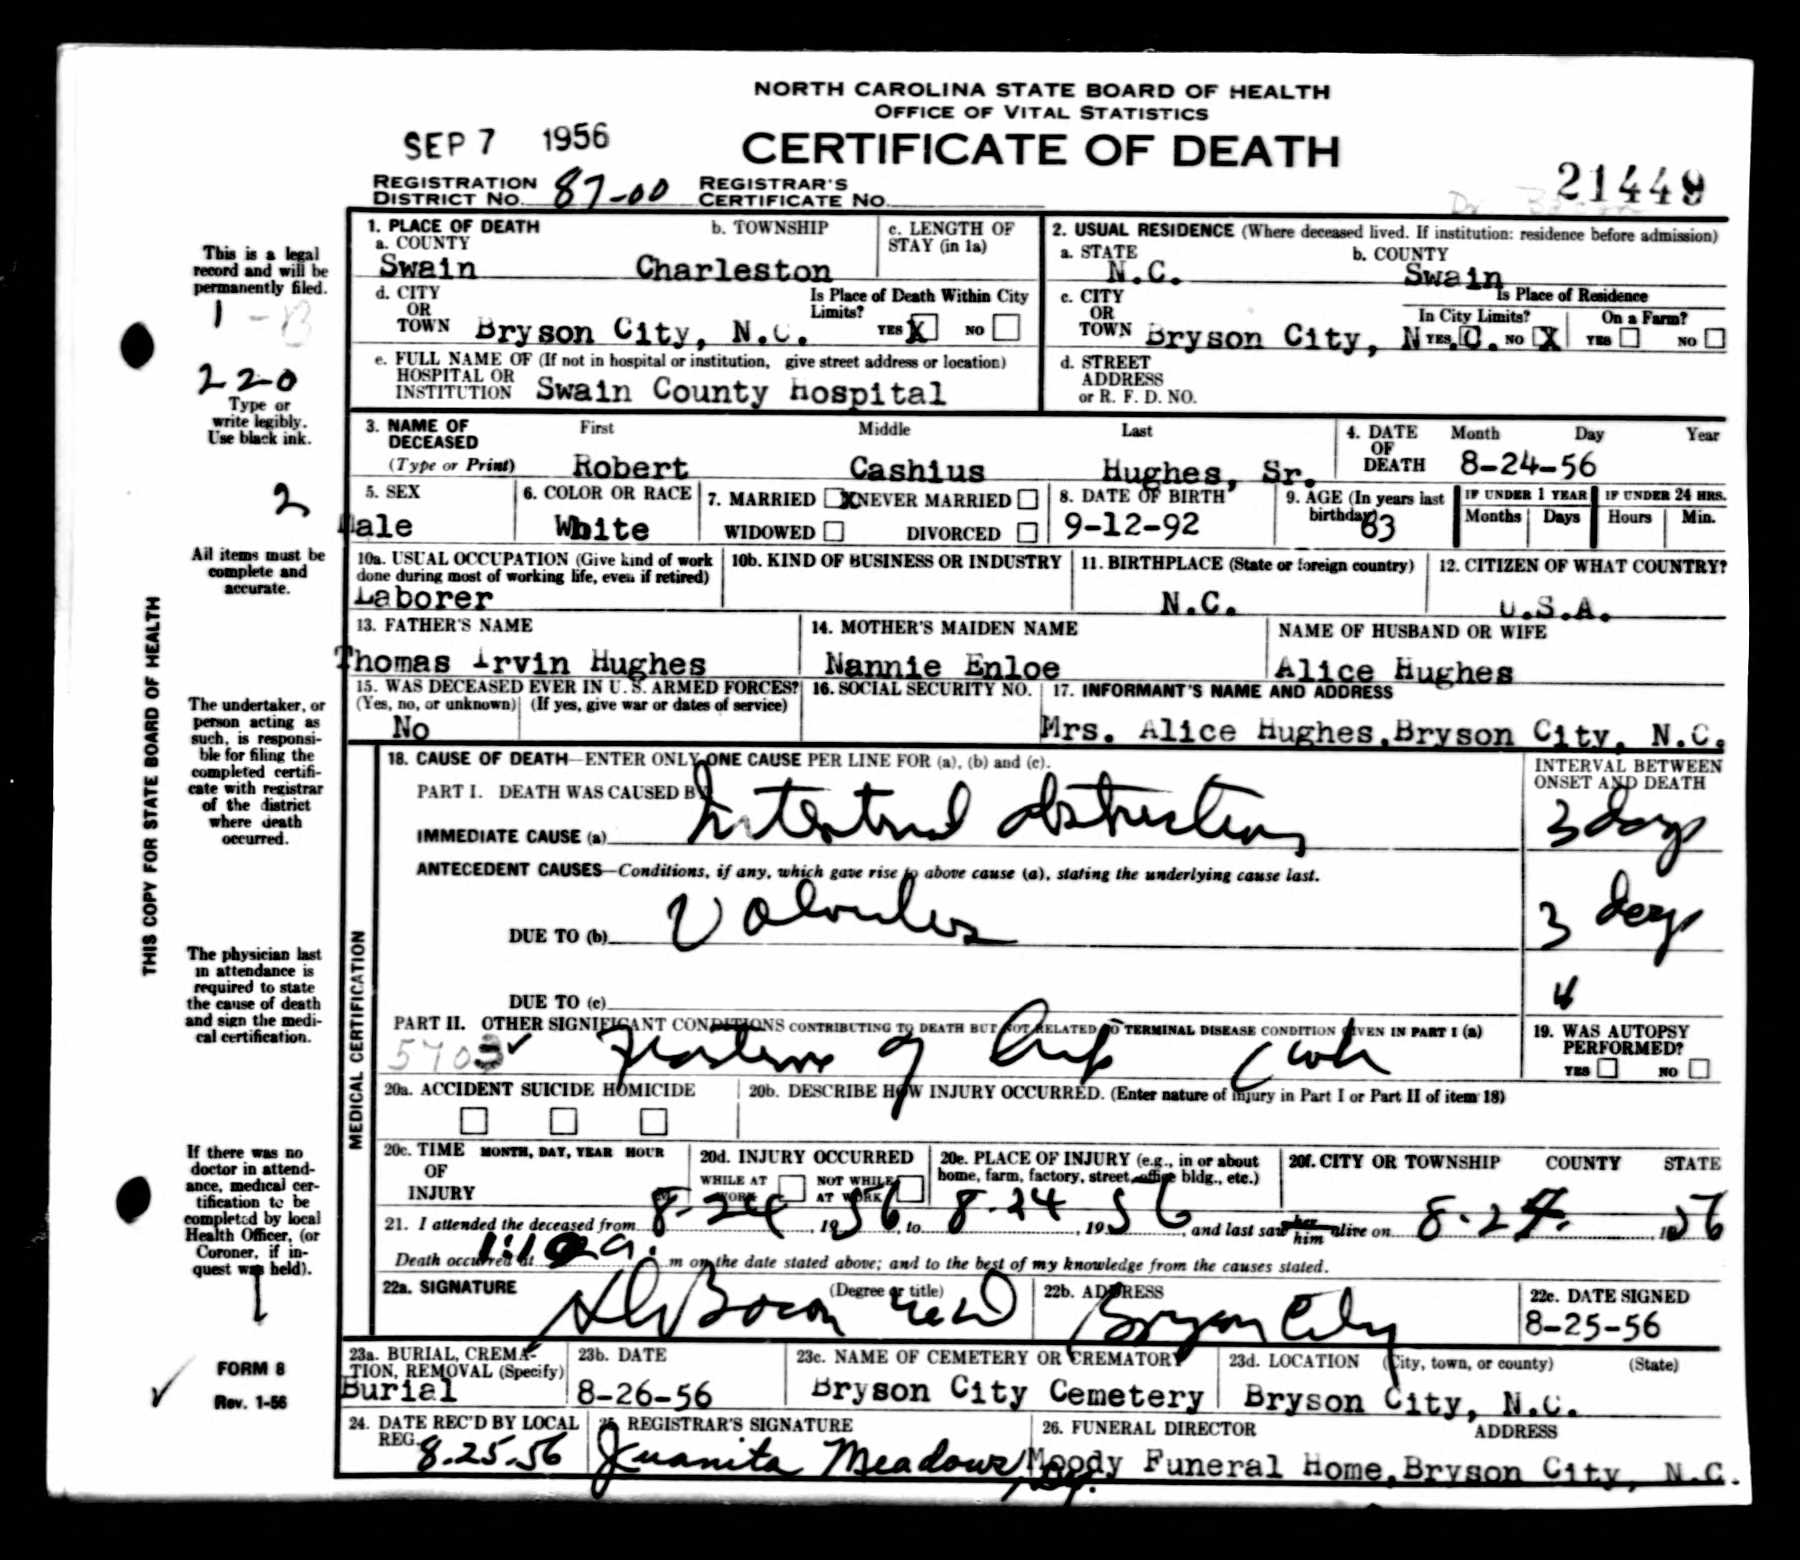 NORTH CAROLINA STATE BOARD OF HEALTH
OFFICE OF VITAL STATISTICS
SEP 7 1956
CERTIFICATE OF DEATH
21449
REGISTRATION DISTRICT NO. 87-00 REGISTRAR'S CERTIFICATE NO.
This is a legal record and will be permanently filed.
1
220
Type or write legibly. Use black ink.
2
All items must be complete and accurate.
The undertaker, or person acting as such, is responsible for filing the completed certificate with registrar of the district where death occurred.
The physician last in attendance is required to state the cause of death and sign the medical certification.
If there was no doctor in attendance, medical certification to be completed by local Health Officer, (or Coroner, if inquest was held).
FORM 8
Rev. 1-56
THIS COPY FOR STATE BOARD OF HEALTH
1. PLACE OF DEATH
a. COUNTY Swain
b. TOWNSHIP Charleston
c. LENGTH OF STAY (in 1a)
2. USUAL RESIDENCE (Where deceased lived. If institution: residence before admission)
a. STATE N.C.
b. COUNTY Swain
d. CITY OR TOWN Bryson City, N.C.
Is Place of Death Within City Limits? YES X NO
c. CITY OR TOWN Bryson City, N.C.
Is Place of Residence
In City Limits? YES NO X
On a Farm? YES NO
e. FULL NAME OF HOSPITAL OR INSTITUTION (If not in hospital or institution, give street address or location) Swain County Hospital
d. STREET ADDRESS or R. F. D. NO.
3. NAME OF DECEASED (Type or Print)
First Robert Middle Cashius Last Hughes, Sr.
4. DATE OF DEATH Month Day Year 8-24-56
5. SEX Male
6. COLOR OR RACE White
7. MARRIED X NEVER MARRIED
WIDOWED DIVORCED
8. DATE OF BIRTH 9-12-92
9. AGE (In years last birthday) 63
IF UNDER 1 YEAR Months Days
IF UNDER 24 HRS. Hours Min.
10a. USUAL OCCUPATION (Give kind of work done during most of working life, even if retired) Laborer
10b. KIND OF BUSINESS OR INDUSTRY
11. BIRTHPLACE (State or foreign country) N.C.
12. CITIZEN OF WHAT COUNTRY? U.S.A.
13. FATHER'S NAME Thomas Irvin Hughes
14. MOTHER'S MAIDEN NAME Nannie Enloe
NAME OF HUSBAND OR WIFE Alice Hughes
15. WAS DECEASED EVER IN U. S. ARMED FORCES? (Yes, no, or unknown) (If yes, give war or dates of service) No
16. SOCIAL SECURITY NO.
17. INFORMANT'S NAME AND ADDRESS Mrs. Alice Hughes, Bryson City, N.C.
MEDICAL CERTIFICATION
18. CAUSE OF DEATH—ENTER ONLY ONE CAUSE PER LINE FOR (a), (b) and (c).
INTERVAL BETWEEN ONSET AND DEATH
PART I. DEATH WAS CAUSED BY:
IMMEDIATE CAUSE (a) Intestinal obstruction 3 days
ANTECEDENT CAUSES—Conditions, if any, which gave rise to above cause (a), stating the underlying cause last.
DUE TO (b) Volvulus 3 days
DUE TO (c)
PART II. OTHER SIGNIFICANT CONDITIONS CONTRIBUTING TO DEATH BUT NOT RELATED TO TERMINAL DISEASE CONDITION GIVEN IN PART I (a)
5703 Fracture of hip
19. WAS AUTOPSY PERFORMED? YES NO
20a. ACCIDENT SUICIDE HOMICIDE
20b. DESCRIBE HOW INJURY OCCURRED. (Enter nature of injury in Part I or Part II of item 18)
20c. TIME OF INJURY MONTH, DAY, YEAR HOUR M
20d. INJURY OCCURRED WHILE AT WORK NOT WHILE AT WORK
20e. PLACE OF INJURY (e.g., in or about home, farm, factory, street, office bldg., etc.)
20f. CITY OR TOWNSHIP COUNTY STATE
21. I attended the deceased from 8-24, 1956, to 8-24, 1956, and last saw her him alive on 8-24, 1956
Death occurred at 1:10 a. m on the date stated above; and to the best of my knowledge from the causes stated.
22a. SIGNATURE (Degree or title) Bacon MD
22b. ADDRESS Bryson City
22c. DATE SIGNED 8-25-56
23a. BURIAL, CREMATION, REMOVAL (Specify) Burial
23b. DATE 8-26-56
23c. NAME OF CEMETERY OR CREMATORY Bryson City Cemetery
23d. LOCATION (City, town, or county) (State) Bryson City, N.C.
24. DATE REC'D BY LOCAL REG. 8.25.56
25. REGISTRAR'S SIGNATURE Juanita Meadows
26. FUNERAL DIRECTOR ADDRESS Moody Funeral Home, Bryson City, N.C.